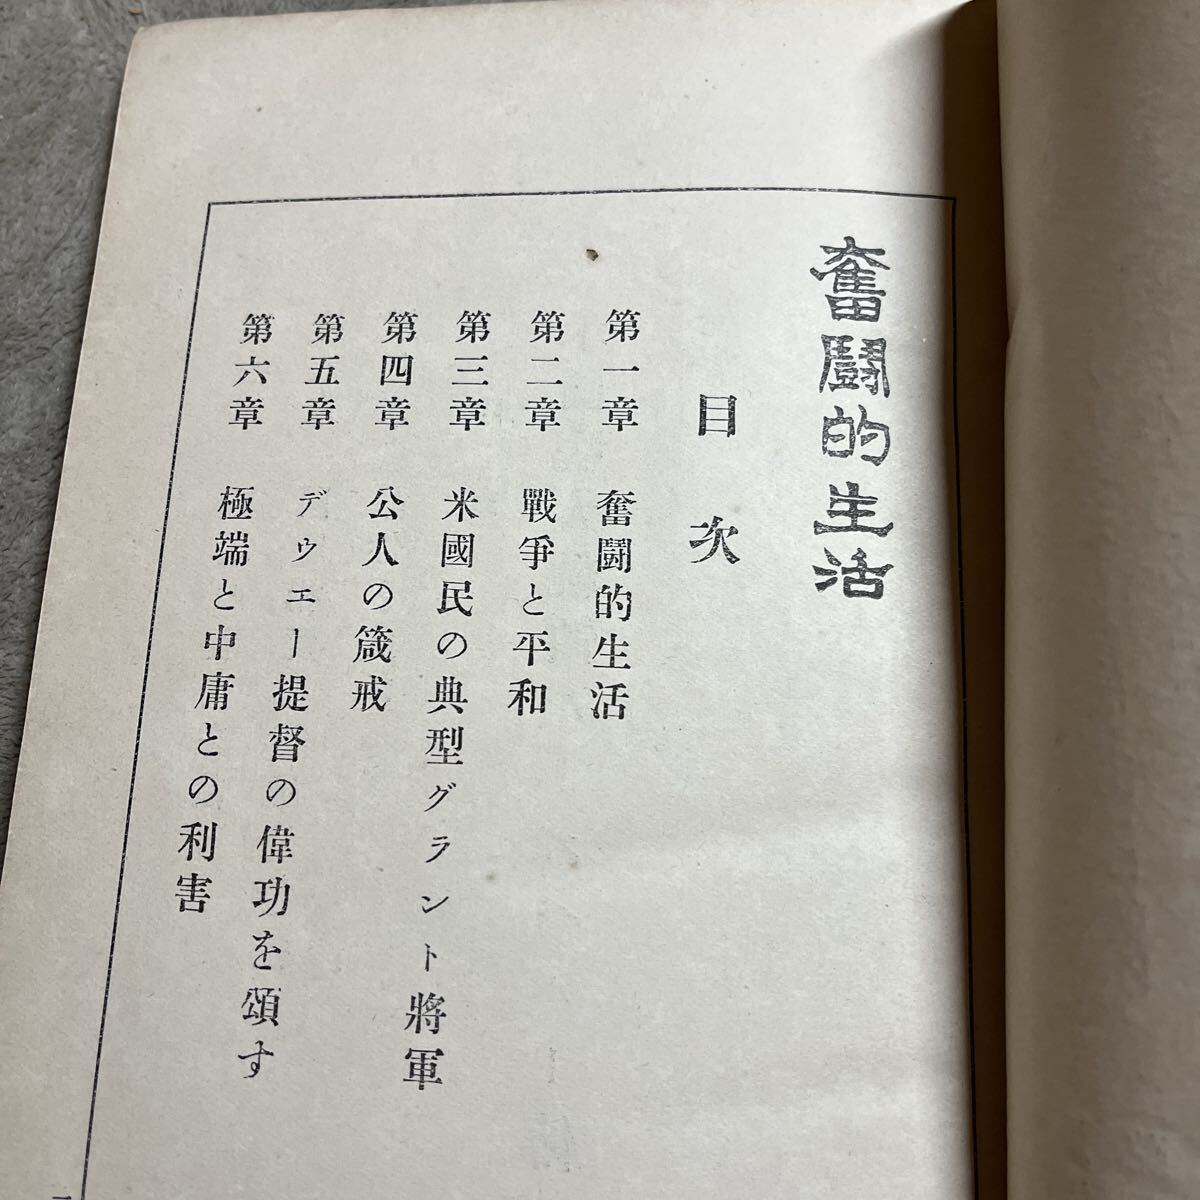 奮鬪的生活
目次
第一章 奮鬪的生活
第二章 戰爭と平和
第三章 米國民の典型グラント將軍
第四章 公人の箴戒
第五章 デウエー提督の偉功を頌す
第六章 極端と中庸との利害